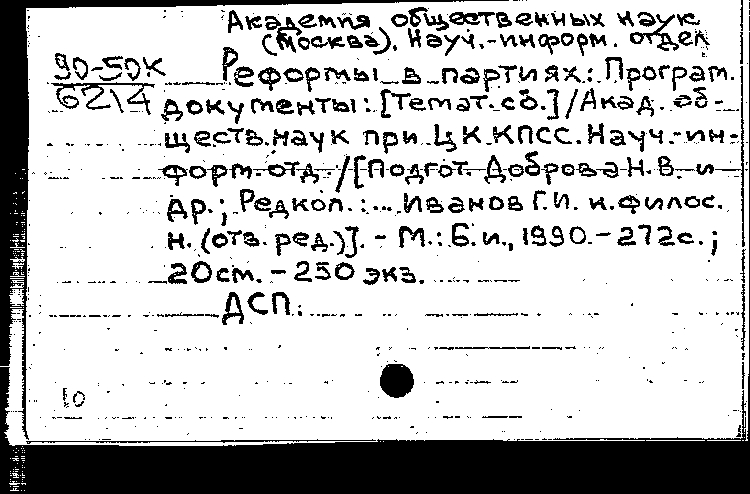 Академия общественных наук
(Москва). Науч.-информ. отдел
90-50К
6214
Реформы в партиях: Програм.
документы: [Темат. сб.] / Акад. об-
ществ. наук при ЦК КПСС. Науч.-ин-
форм. отд. / [Подгот. Доброва Н.В. и
др.; Редкол.: ... Иванов Г.И. к. филос.
н. (отв. ред.)]. - М.: Б. и., 1990. - 272с.;
20см. - 250 экз.
ДСП.
10